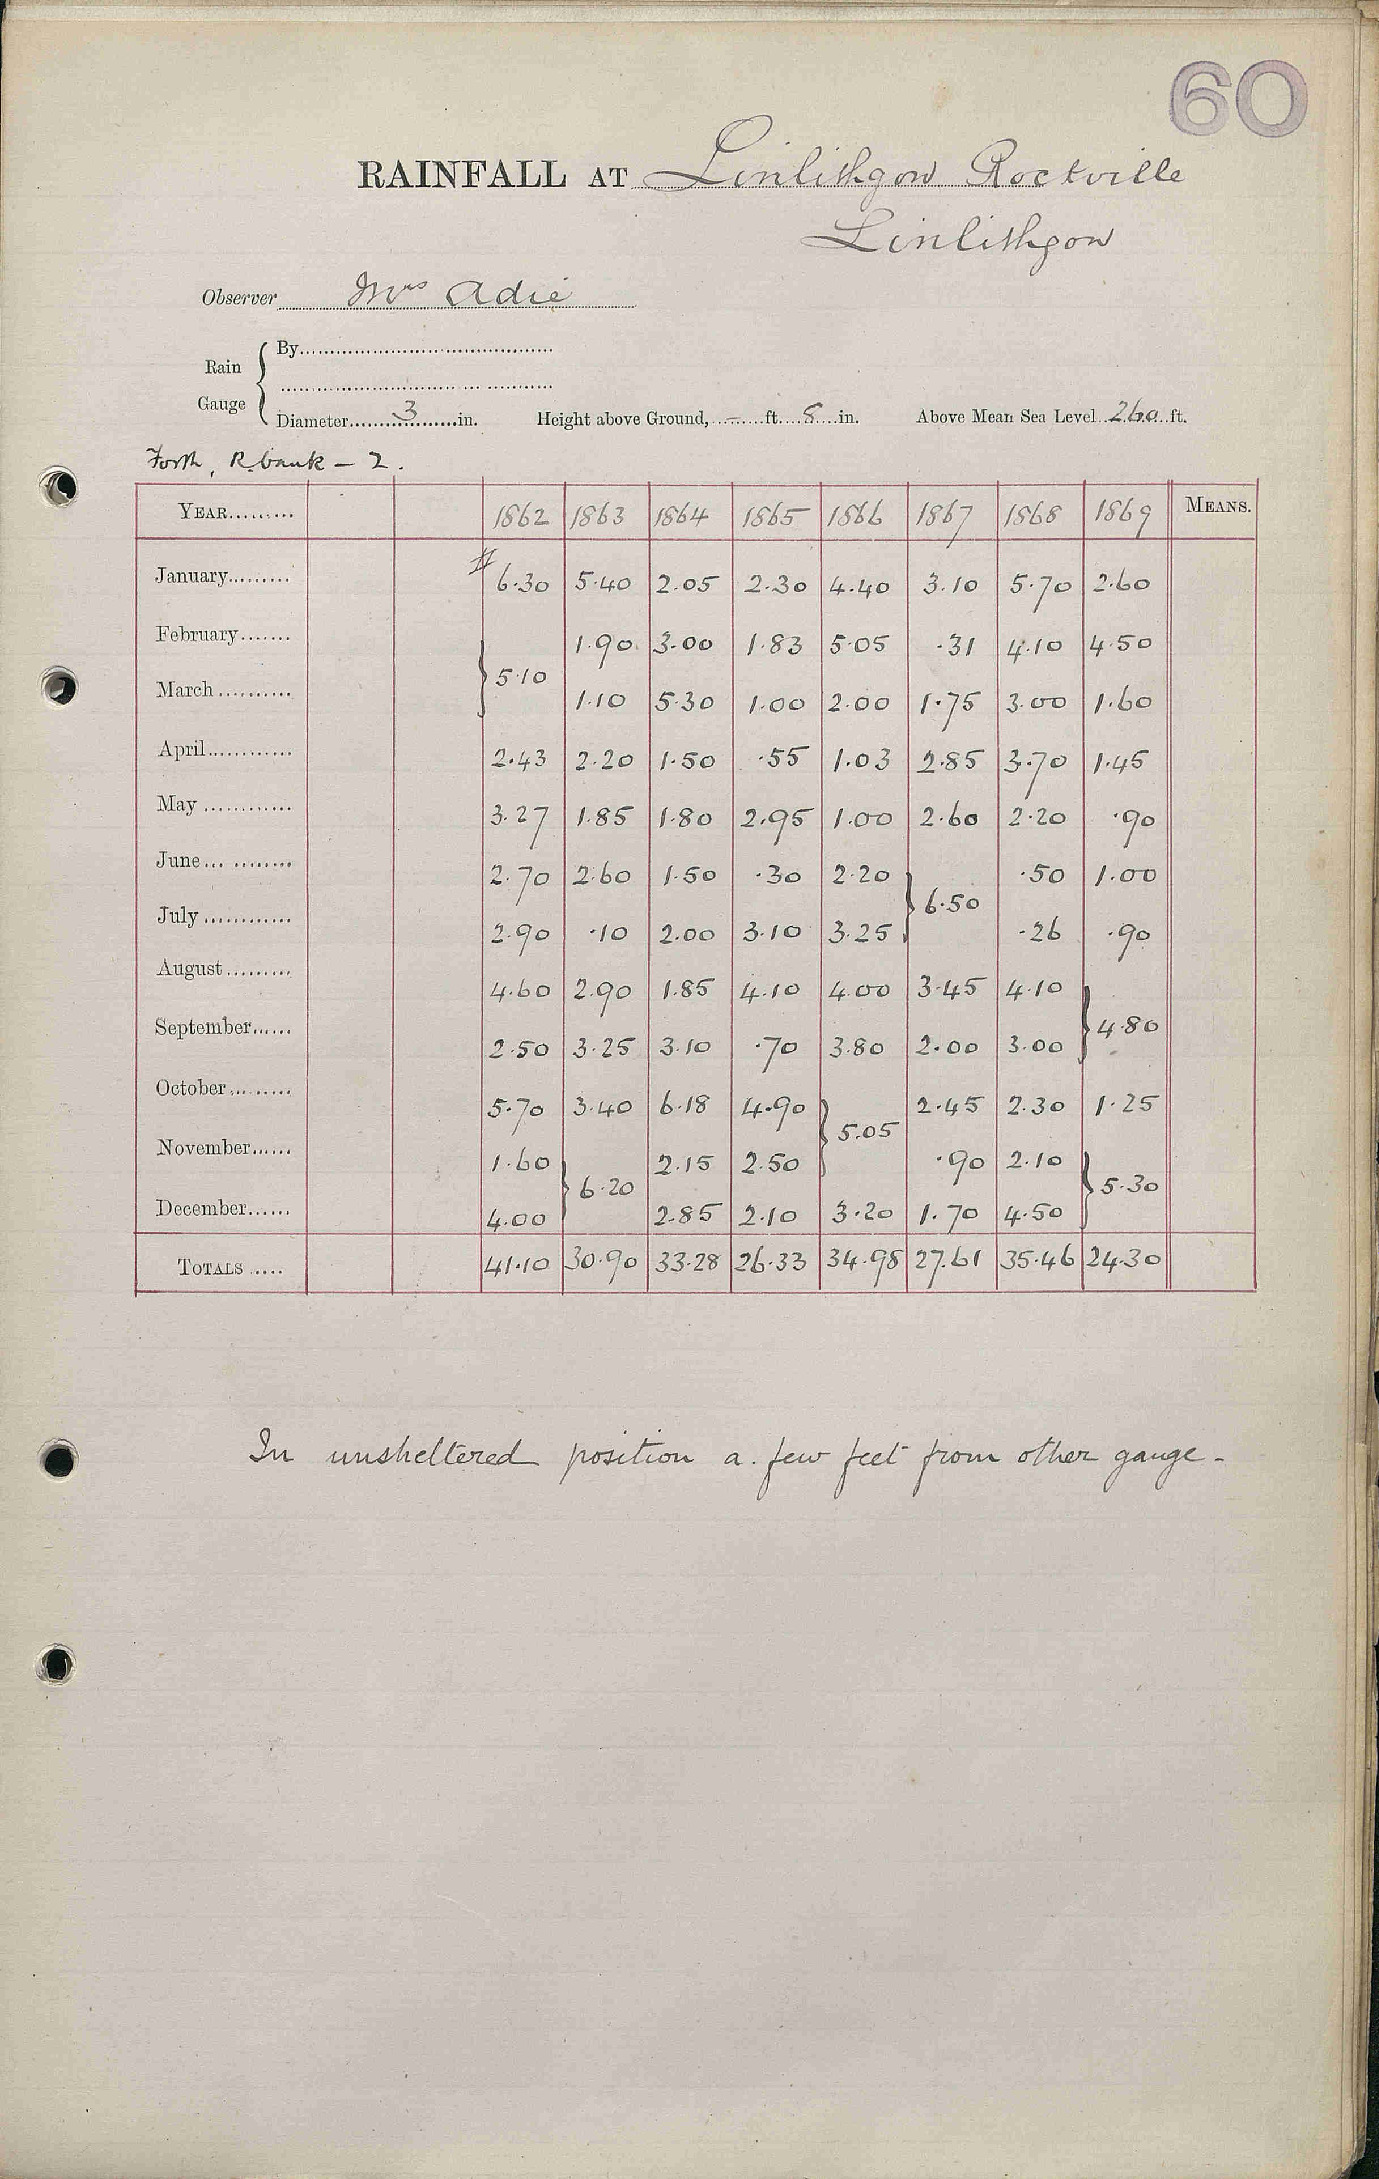 60
RAINFALL AT Linlithgow Rockville
Linlithgow
Observer Mrs Adie
Rain Gauge { By
Diameter 3 in. Height above Ground, - ft. 8 in. Above Mean Sea Level 260 ft.
Forth, R. bank - 2.
YEAR 1862 1863 1864 1865 1866 1867 1868 1869 MEANS.
January # 6.30 5.40 2.05 2.30 4.40 3.10 5.70 2.60
February 1.90 3.00 1.83 5.05 .31 4.10 4.50
} 5.10
March 1.10 5.30 1.00 2.00 1.75 3.00 1.60
April 2.43 2.20 1.50 .55 1.03 2.85 3.70 1.45
May 3.27 1.85 1.80 2.95 1.00 2.60 2.20 .90
June 2.70 2.60 1.50 .30 2.20 .50 1.00
} 6.50
July 2.90 .10 2.00 3.10 3.25 .26 .90
August 4.60 2.90 1.85 4.10 4.00 3.45 4.10
} 4.80
September 2.50 3.25 3.10 .70 3.80 2.00 3.00
October 5.70 3.40 6.18 4.90 2.45 2.30 1.25
} 5.05
November 1.60 2.15 2.50 .90 2.10
} 6.20 } 5.30
December 4.00 2.85 2.10 3.20 1.70 4.50
TOTALS 41.10 30.90 33.28 26.33 34.98 27.61 35.46 24.30
In unsheltered position a few feet from other gauge.